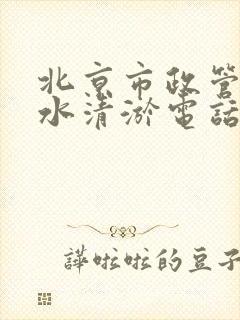 北京市政管
水清淤電話
譁啦啦的豆子